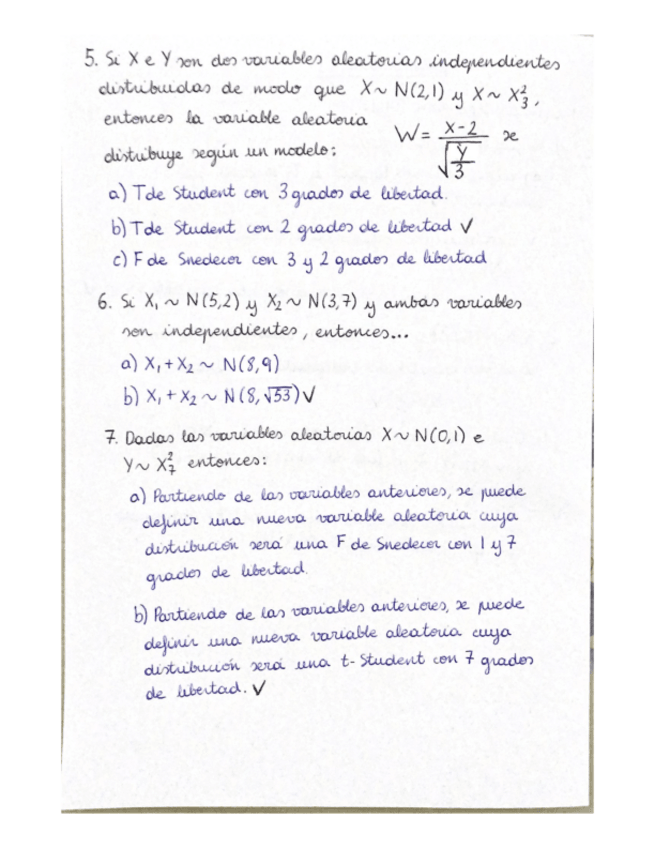 5. Si X e Y son dos variables aleatorias independientes
distribuidas de modo que X~ N(2,1) y X~ X²₃,
entonces la variable aleatoria W = (X-2)/√(Y/3) se
distribuye según un modelo:
a) T de Student con 3 grados de libertad.
b) T de Student con 2 grados de libertad ✓
c) F de Snedecor con 3 y 2 grados de libertad
6. Si X₁ ~ N(5,2) y X₂ ~ N(3,7) y ambas variables
son independientes, entonces...
a) X₁ + X₂ ~ N(8,9)
b) X₁ + X₂ ~ N(8, √53) ✓
7. Dadas las variables aleatorias X~ N(0,1) e
Y~ X²₇ entonces:
a) Partiendo de las variables anteriores, se puede
definir una nueva variable aleatoria cuya
distribución será una F de Snedecor con 1 y 7
grados de libertad.
b) Partiendo de las variables anteriores, se puede
definir una nueva variable aleatoria cuya
distribución será una t-Student con 7 grados
de libertad. ✓